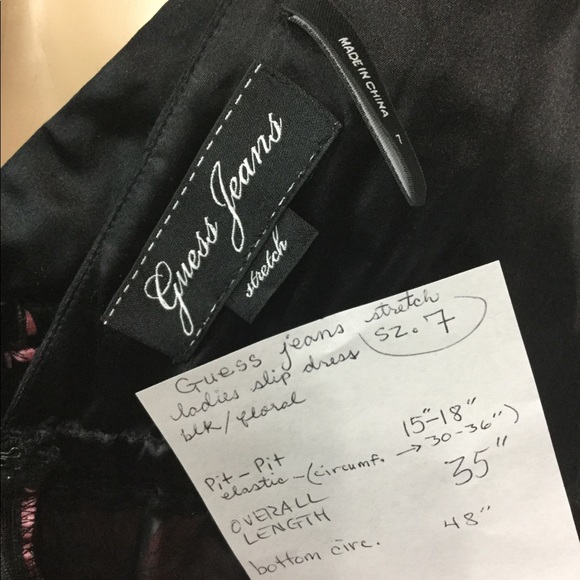 MADE IN CHINA
7
Guess Jeans
stretch
Guess jeans stretch
sz. 7
ladies slip dress
blk/floral
Pit-Pit 15"-18"
elastic-(circumf. → 30-36")
OVERALL
LENGTH 35"
bottom circ. 48"